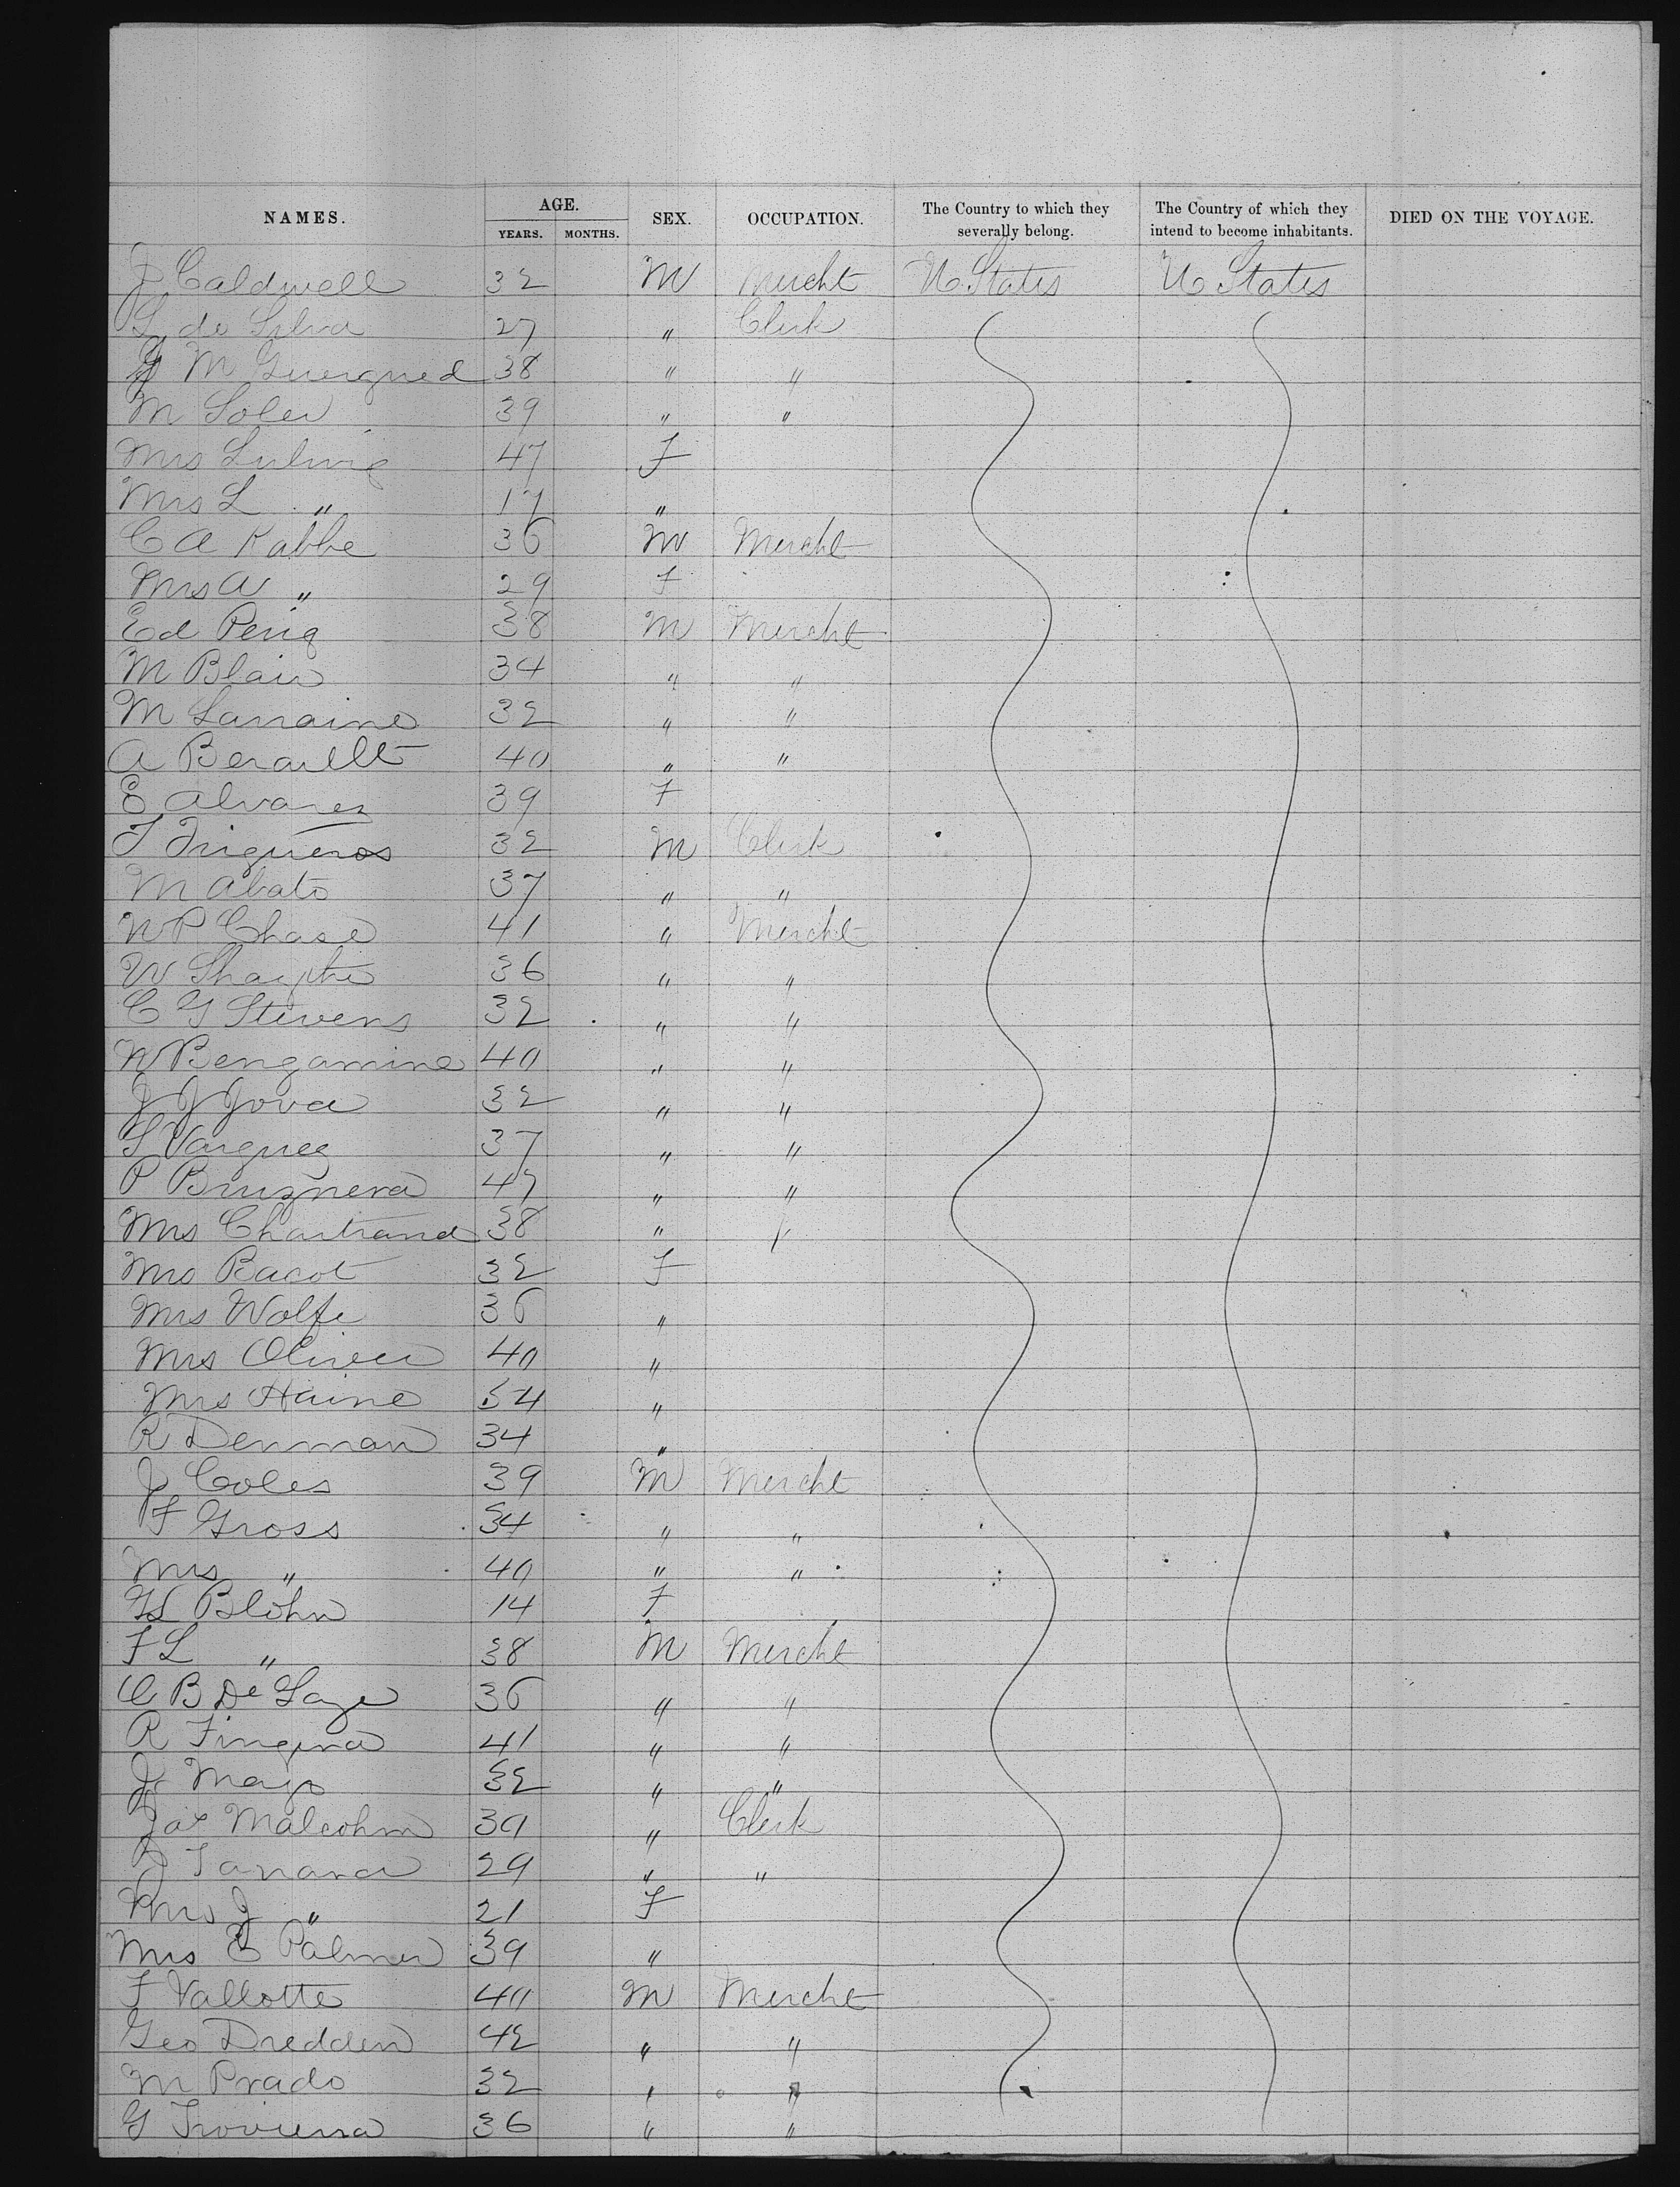 NAMES. AGE. SEX. OCCUPATION. The Country to which they severally belong. The Country of which they intend to become inhabitants. DIED ON THE VOYAGE.
YEARS. MONTHS.
J Caldwell 32 M Mercht U States U States
L de Silva 27 " Clerk
M Guergued 38 " "
M Soler 39 " "
Mrs Lulwig 47 F
Mrs L " 17 "
C A Kabbe 36 M Mercht
Mrs A " 29 F
Ed Periq 38 M Mercht
M Blair 34 " "
M Larraine 32 " "
A Beraillt 40 " "
E Alvarez 39 F
F Trigueros 32 M Clerk
M Abato 37 " "
W P Chase 41 " Mercht
W 36 " "
C G Stevens 32 " "
W Bengamine 40 " "
J J Jova 32 " "
S Varguez 37 " "
P Bruznera 47 " "
Mrs Chartrand 38 " "
Mrs Bacot 32 F
Mrs Wolfe 36 "
Mrs Oliver 40 "
Mrs Haine 54 "
R Denman 34 "
J Coles 39 M Mercht
F Gross 34 " "
Mrs " 40 " "
Blohn 14 F
F L " 38 M Mercht
C B De Laze 36 " "
R Fingina 41 " "
J Mayo 32 " "
Jas Malcohm 39 " Clerk
29 " "
Mrs J " 21 F
Mrs E Palmer 39 "
F Vallotte 40 M Mercht
Geo Dredden 42 " "
M Prado 32 " "
G 36 " "